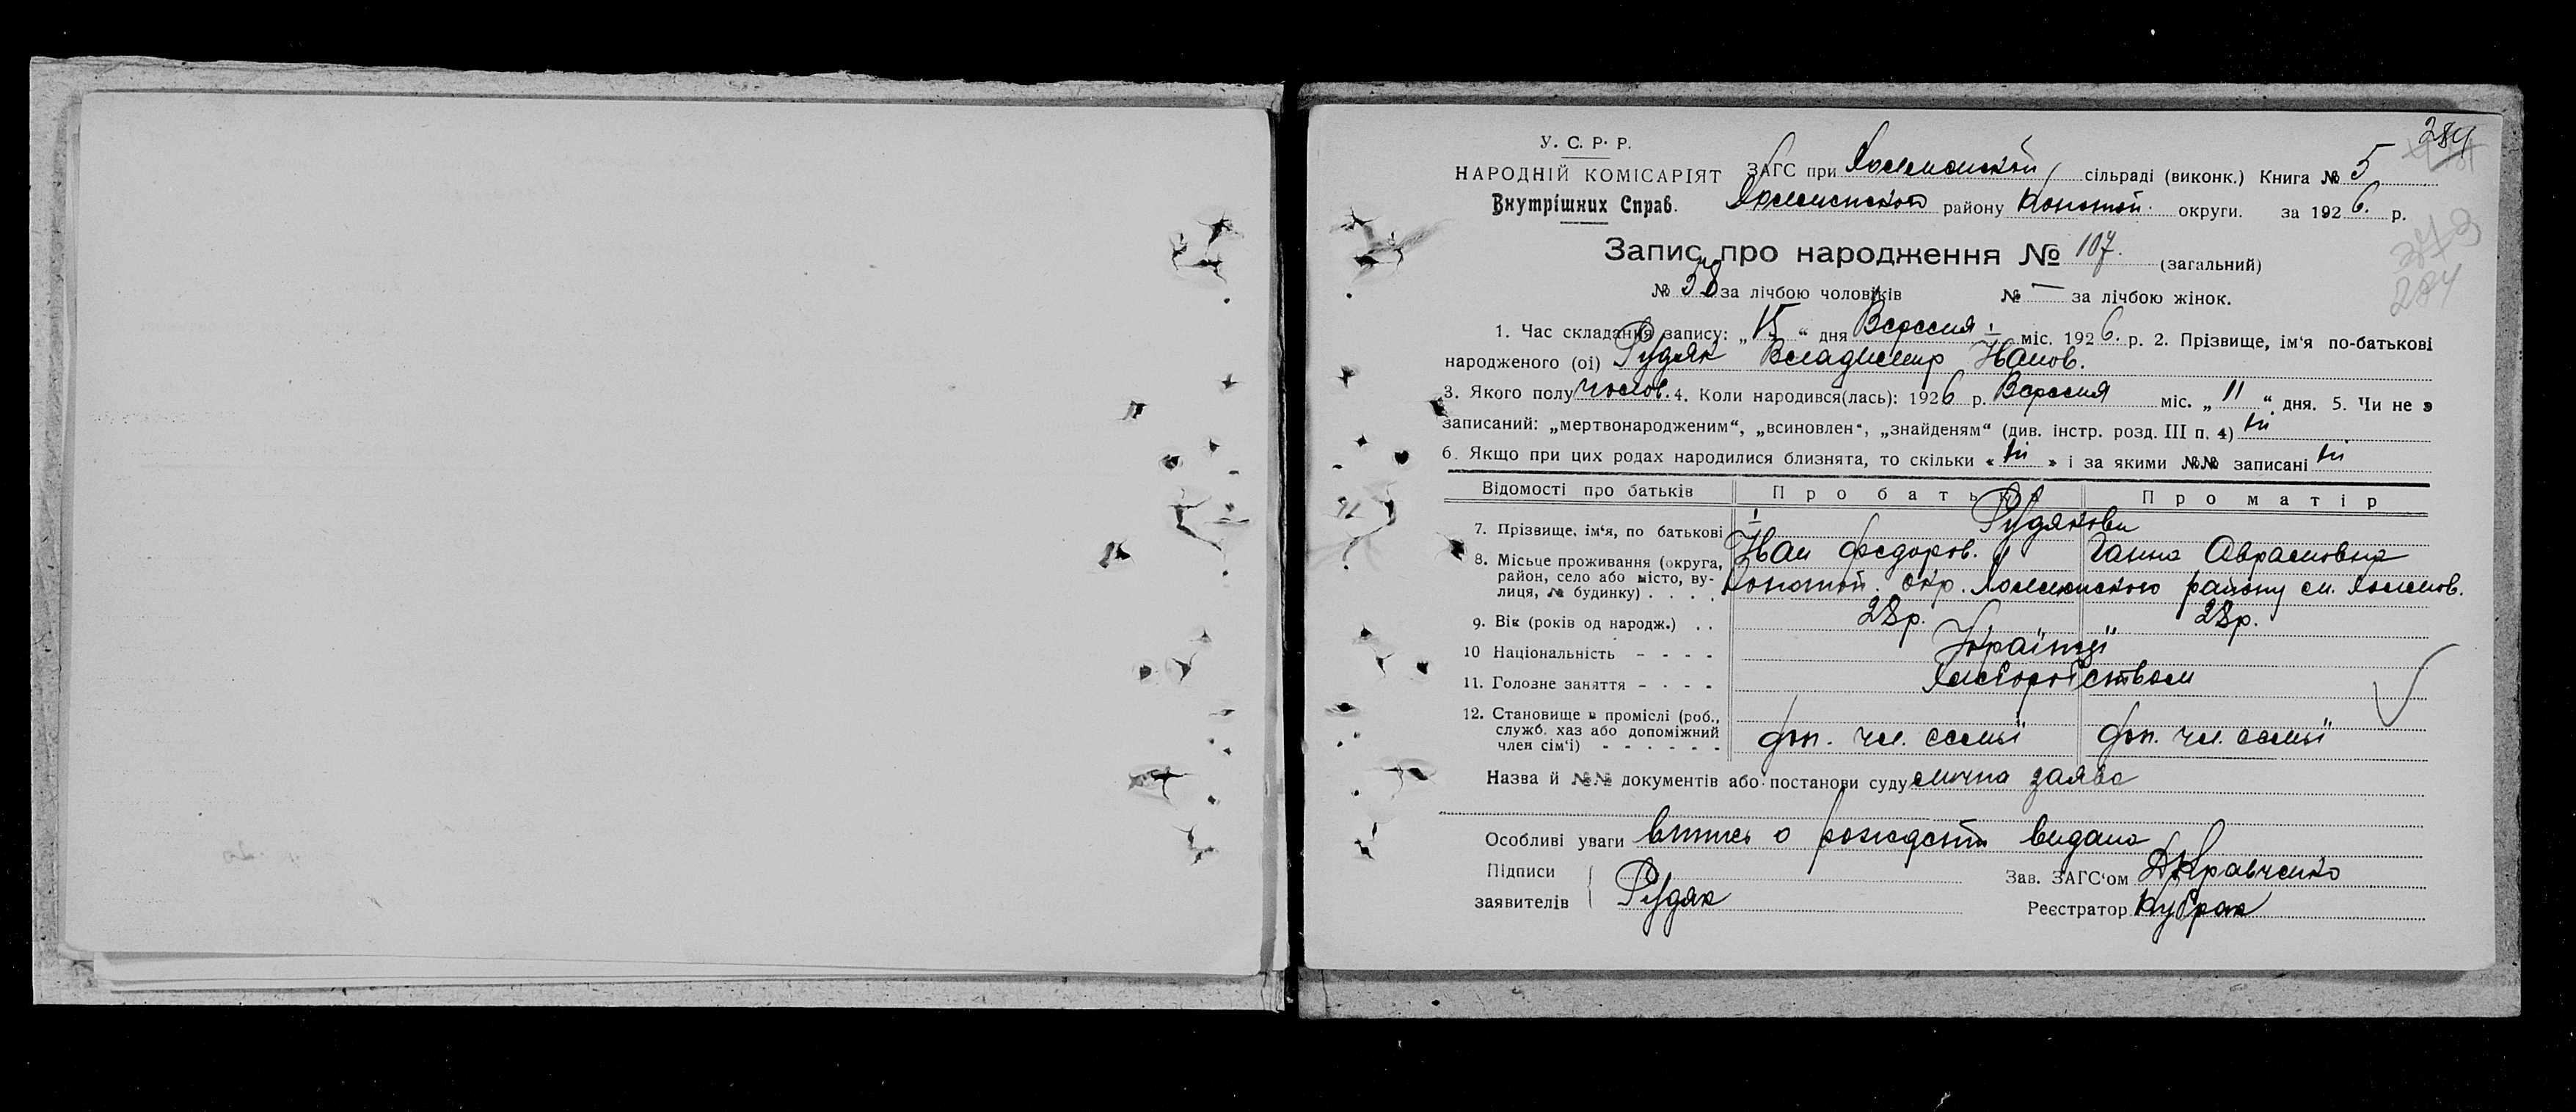 284
У. С. Р. Р.
НАРОДНІЙ КОМІСАРІЯТ
Внутрішних Справ.
ЗАГС при Холмському сільраді (виконк.) Книга № 5
Холмського району Конотоп. округи. за 1926. р.
373
284
Запис про народження № 107. (загальний)
№ 58 за лічбою чоловіків № — за лічбою жінок.
1. Час складання запису: „15“ дня Вересня міс. 1926. р. 2. Прізвище, ім‘я по-батькові
народженого (ої) Рудяк Владимир Иванов.
3. Якого полу чолов. 4. Коли народився(лась): 1926 р. Вересня міс. „11“ дня. 5. Чи не є
записаний: „мертвонародженим“, „всиновлен“, „знайденям“ (див. інстр. розд. III п. 4) ні
6. Якщо при цих родах народилися близнята, то скільки « ні » і за якими №№ записані ні
Відомості про батьків Про батька Про матір
7. Прізвище, ім‘я, по батькові Рудякови
Иван Федоров. Ганна Аврамовна
8. Місьце проживання (округа, район, село або місто, вулиця, № будинку) . . . . Конотоп. окр. району
9. Вік (років од народж.) . . 28 р. 28 р.
10 Національність - - - - Українці
11. Головне заняття - - - -
12. Становище в промислі (роб., служб. хаз або допоміжний член сім‘ї) - - - - - - доп. чл. семьї доп. чл. семьї
Назва й №№ документів або постанови суду заява
Особливі уваги о видана
Підписи
заявителів Рудяк
Зав. ЗАГС‘ом Кравченко
Реєстратор Кубрак